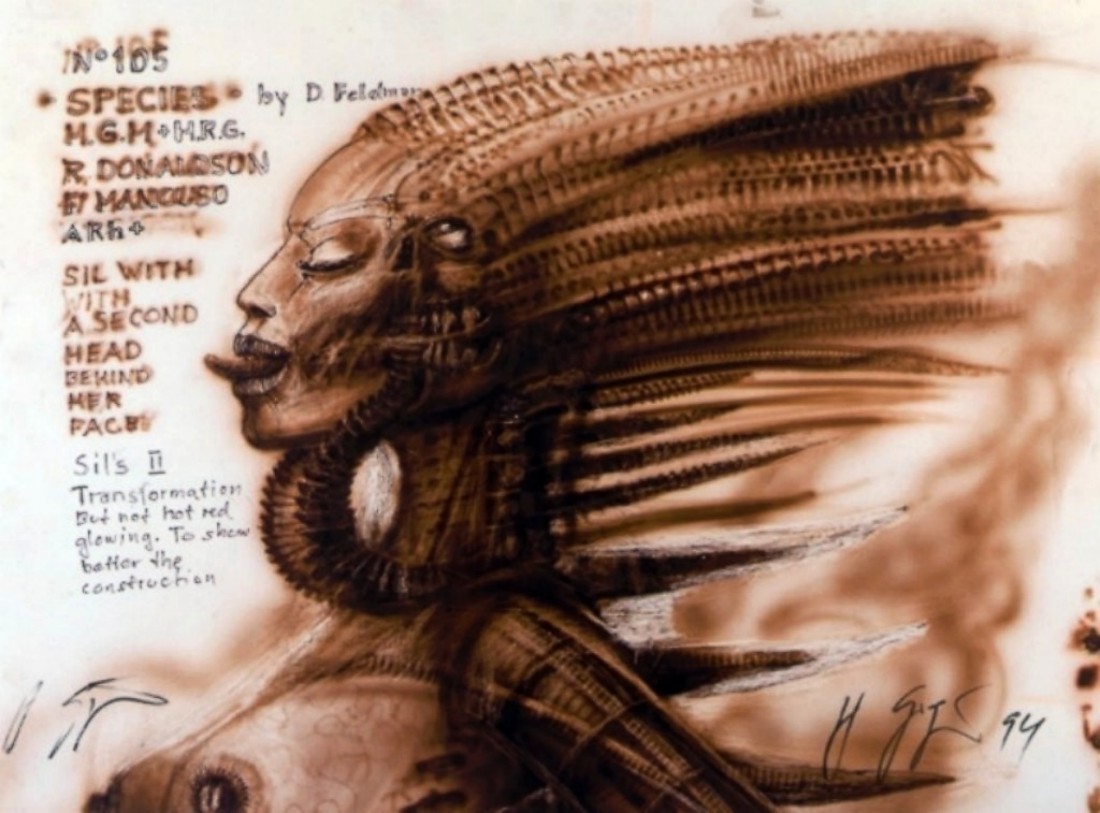 N°105
• SPECIES • by D. Feldman
M.G.M + H.R.G.
R. DONALDSON
F. MANCUSO
ARh+
SIL WITH
WITH
A SECOND
HEAD
BEHIND
HER
FACE
Sil's II
Transformation
But not hot red
glowing. To show
better the
construction
H Giger 94